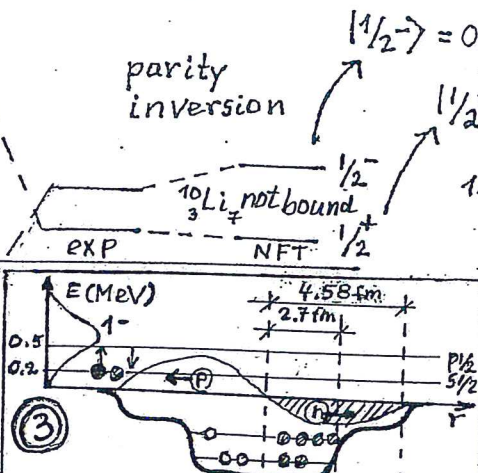 |1/2⁻⟩ = 0
parity
inversion
|1/2
1/2⁻
¹⁰₃Li₇ not bound
exp
NFT
1/2⁺
E(MeV)
4.58 fm
2.7 fm
1⁻
0.5
p1/2
0.2
s1/2
p
n
r
3